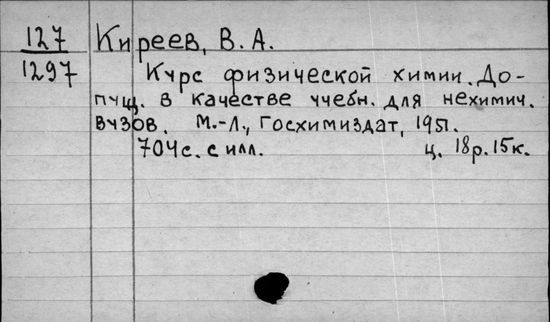 127
1297
Киреев, В. А.
Курс физической химии. До-
пущ. в качестве учебн. для нехимич.
вузов. М.-Л., Госхимиздат, 1951.
704с. с илл. ц. 18р. 15к.